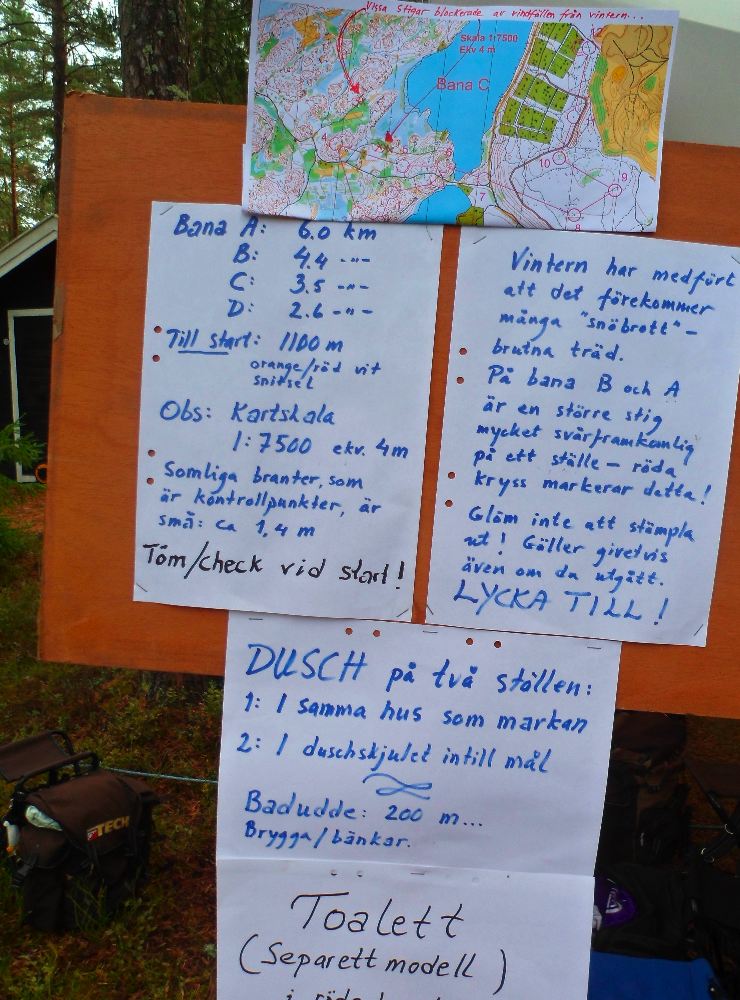 Vissa stigar blockerade av vindfällen från vintern...
Skala 1:7500
Ekv 4 m
Bana C
12
10
9
8
7
Bana A: 6.0 km
B: 4.4 -"-
C: 3.5 -"-
D: 2.6 -"-
Till start: 1100 m
orange/röd vit
snitsel
Obs: Kartskala
1:7500 ekv. 4m
Somliga branter, som
är kontrollpunkter, är
små: ca 1,4 m
Töm/check vid start!
Vintern har medfört
att det förekommer
många "snöbrott" -
brutna träd.
På bana B och A
är en större stig
mycket svårframkomlig
på ett ställe - röda
kryss markerar detta!
Glöm inte att stämpla
ut! Gäller givetvis
även om du utgått.
LYCKA TILL!
DUSCH på två ställen:
1: I samma hus som markan
2: I duschskjulet intill mål
Badudde: 200 m...
Brygga/bänkar.
Toalett
(Separett modell)
TECH